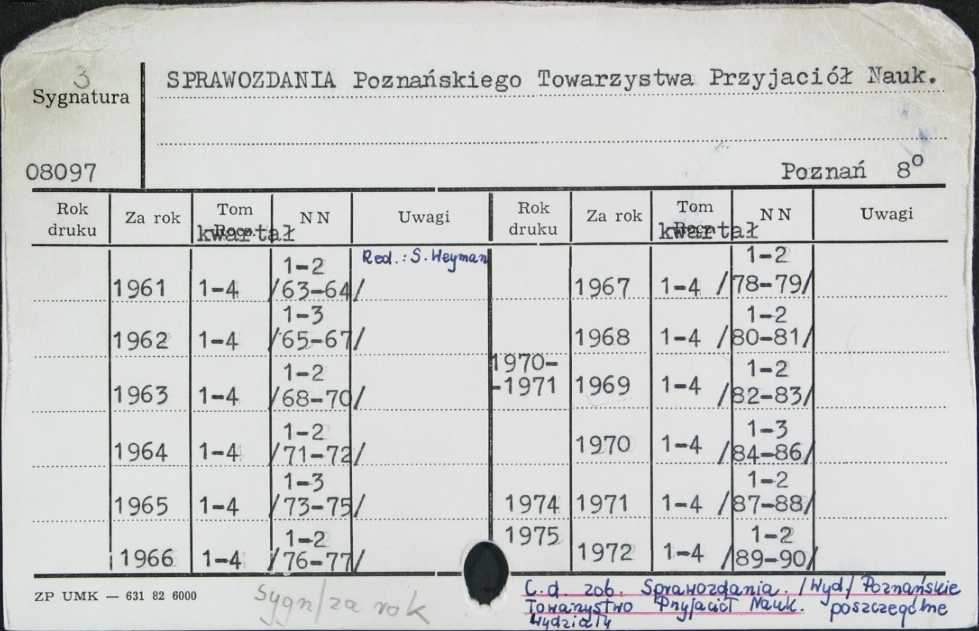 3
Sygnatura
SPRAWOZDANIA Poznańskiego Towarzystwa Przyjaciół Nauk.
08097
Poznań 8⁰
Rok druku Za rok Tom NN Uwagi Rok druku Za rok Tom NN Uwagi
kwartał kwartał
1961 1-4 1-2 /63-64/ Red.: S. Weyman 1967 1-4 1-2 /78-79/
1962 1-4 1-3 /65-67/ 1968 1-4 1-2 /80-81/
1963 1-4 1-2 /68-70/ 1970--1971 1969 1-4 1-2 /82-83/
1964 1-4 1-2 /71-72/ 1970 1-4 1-3 /84-86/
1965 1-4 1-3 /73-75/ 1974 1971 1-4 1-2 /87-88/
1966 1-4 1-2 /76-77/ 1975 1972 1-4 1-2 /89-90/
ZP UMK — 631 82 6000
Sygn/za rok
C.d. zob. Sprawozdania. /Wyd/ Poznańskie
Towarzystwo Przyjaciół Nauk. poszczególne
Wydziały